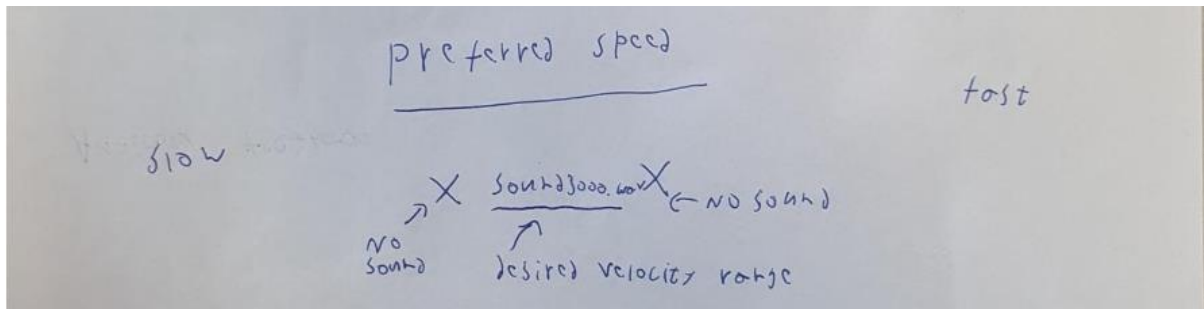 preferred speed
fast
slow
X sound3000.wav X ← NO sound
NO
sound
desired velocity range